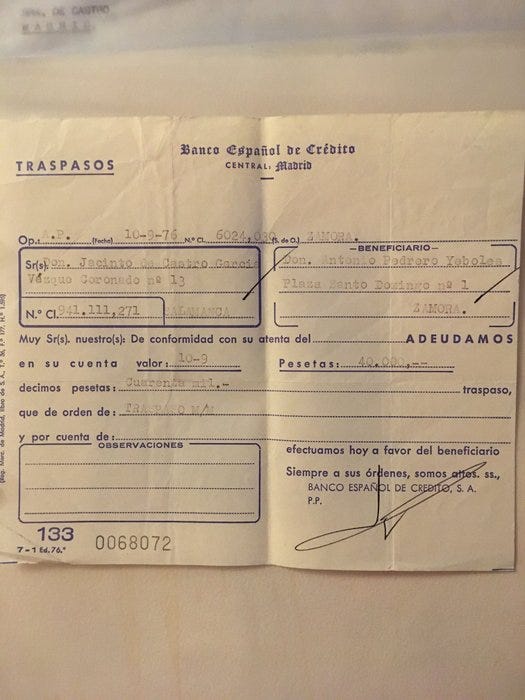 SRA. DE CASTRO
MADRID.
TRASPASOS
Banco Español de Crédito
CENTRAL: Madrid
Op.: A.P. (Fecha) 10-9-76 N.º Cl. 6024,030 (S. de O.) ZAMORA.
Sr(s). Don. Jacinto de Castro Garcia
Vazquo Coronado nº 13
N.º Cl. 941.111,271 SALAMANCA
BENEFICIARIO
Don. Antonio Pedrero Yeboles
Plaza Santo Domingo nº 1
ZAMORA.
Muy Sr(s). nuestro(s): De conformidad con su atenta del ADEUDAMOS
en su cuenta valor: 10-9 Pesetas: 40.000,--
decimos pesetas: Cuarenta mil.- traspaso,
que de orden de: TRASPASO M/M
y por cuenta de:
efectuamos hoy a favor del beneficiario
OBSERVACIONES
Siempre a sus órdenes, somos attos. ss.,
BANCO ESPAÑOL DE CREDITO, S. A.
P.P.
133
7-1 Ed. 76.ª
0068072